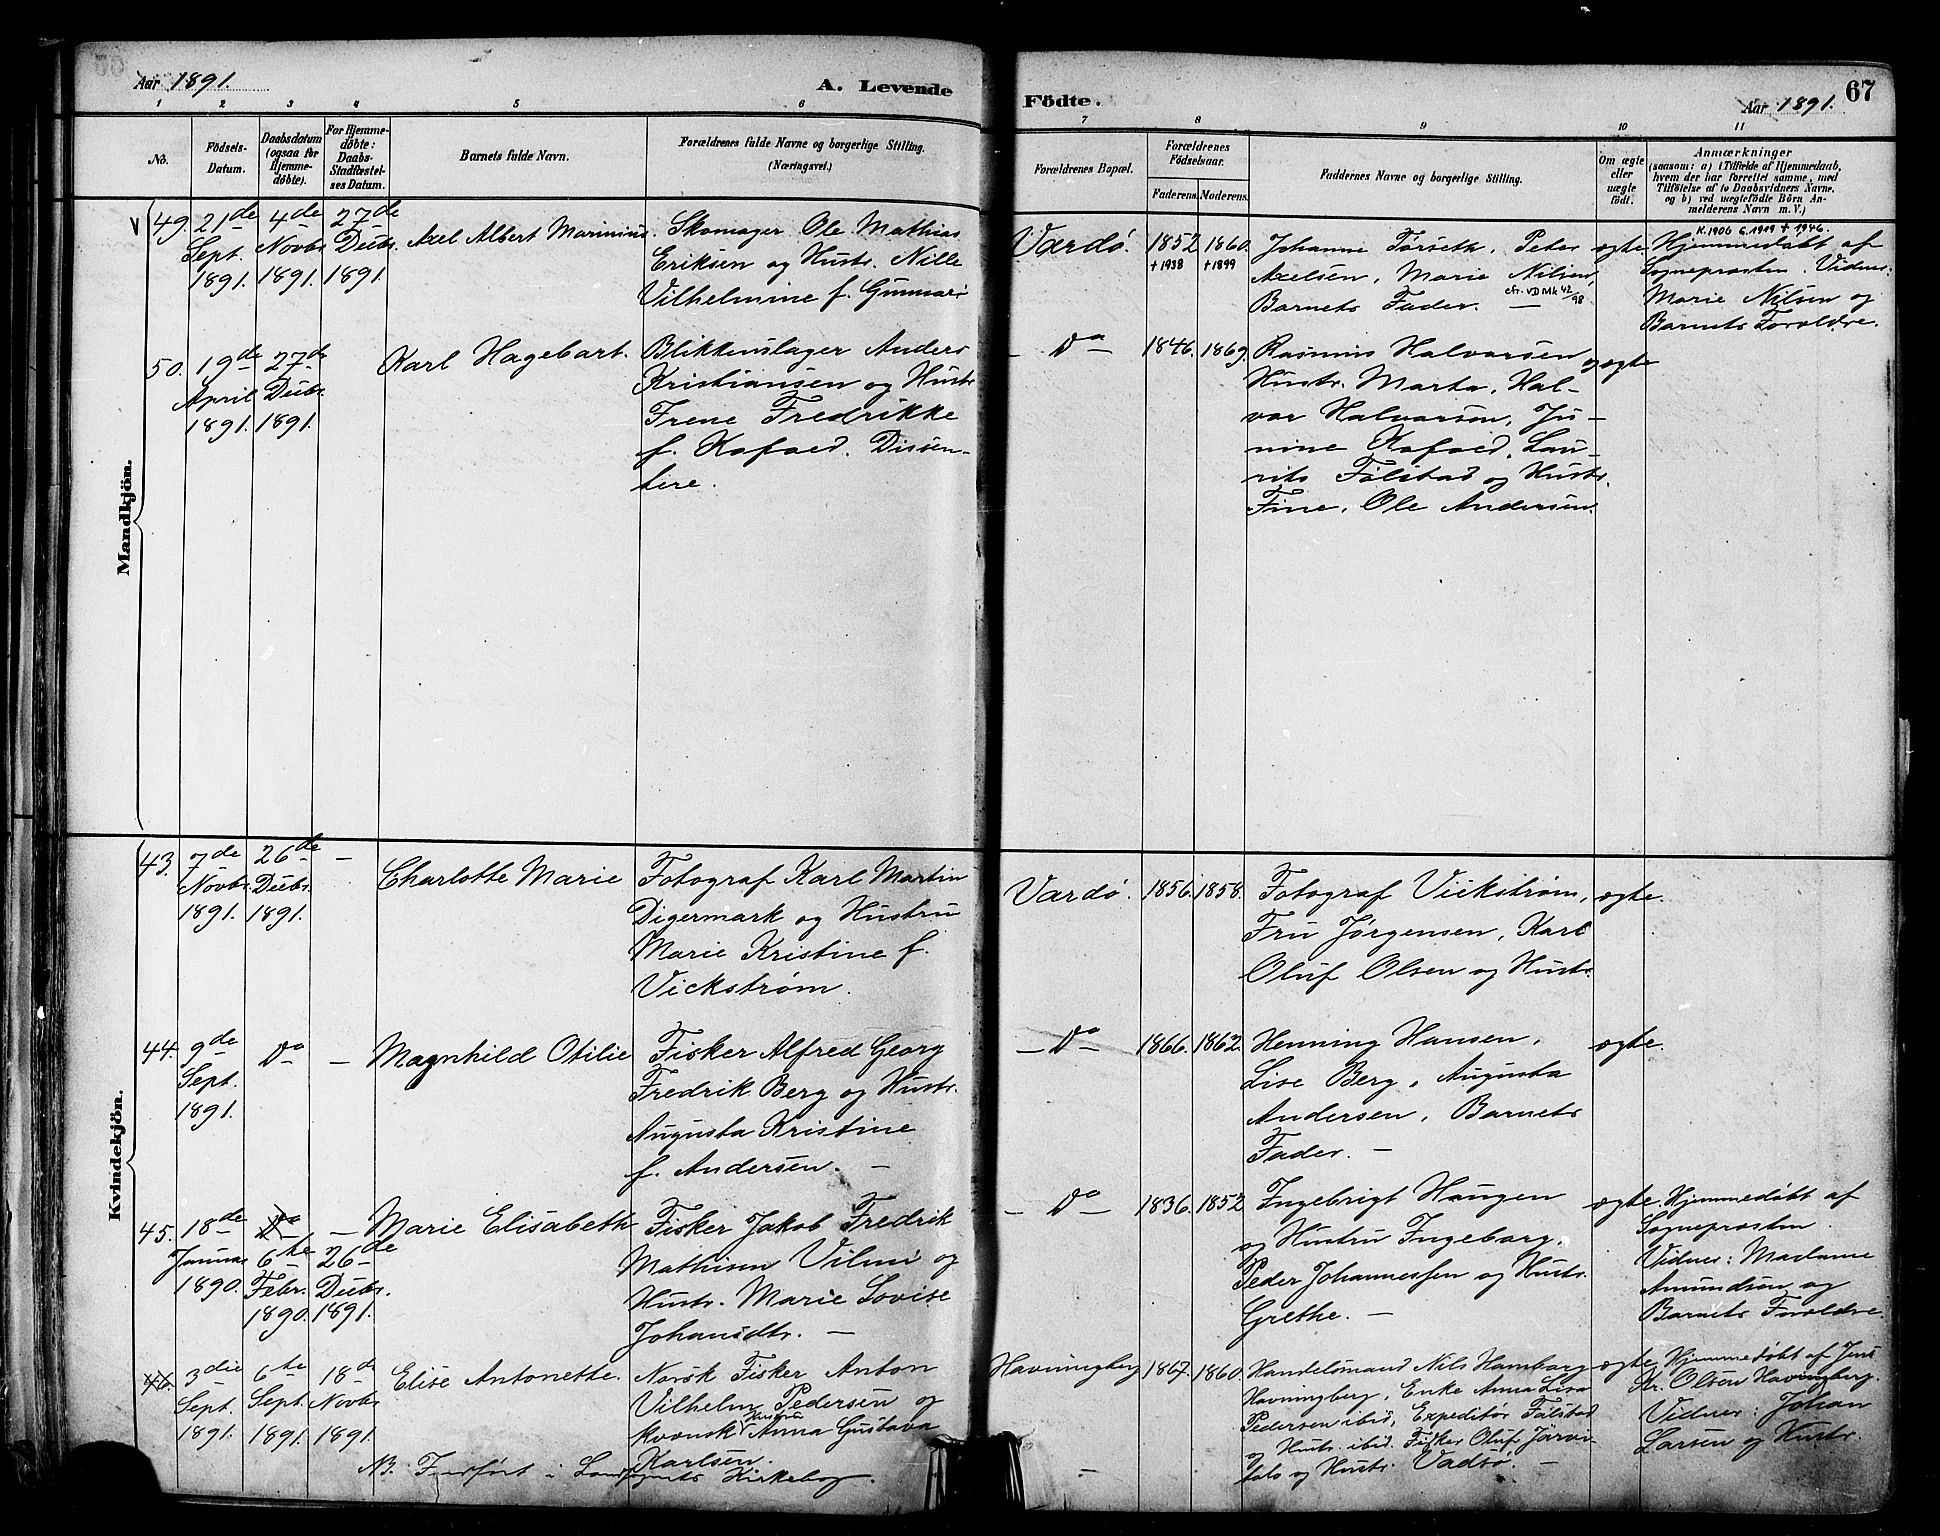 Aar 1891.
A. Levende
Födte.
Aar 1891.
67
1 2 3 4 5 6 7 8 9 10 11
No.
Födsels-
Datum.
Daabsdatum
(ogsaa for
Hjemme-
døbte).
For Hjemme-
døbte:
Daabs-
Stadfæstel-
ses Datum.
Barnets fulde Navn.
Forældrenes fulde Navne og borgerlige Stilling.
(Næringsvei.)
Forældrenes Bopæl.
Forældrenes
Födselsaar.
Faderens.
Moderens.
Faddernes Navne og borgerlige Stilling.
Om ægte
eller
uægte
født.
Anmærkninger
(saasom: a) i Tilfælde af Hjemmedaab,
hvem der har forrettet samme, med
Tilføielse af to Daabsvidners Navne.
og b) ved uægtefødte Börn An-
melderens Navn m. V.)
Mandkjön.
V
49.
21de
Sept.
1891.
4de
Novbr.
1891.
27de
Decbr.
1891.
Axel Albert Marinius.
Skomager Ole Mathias
Eriksen og Hustr. Nille
Vilhelmine f. Gunnari
Vardø.
1852
+ 1938
1860.
+ 1899
Johanne Tørseth, Peter
Axelsen, Marie Nilsen,
cfr. VD Mk 42/98
Barnets Fader. —
ægte.
K. 1906 G. 1919 + 1946.
Hjemmedøbt af
Sogneprosten. Vidner:
Marie Nilsen og
Barnets Forældre.
50.
19de
April
1891.
27de
Decbr.
1891.
Karl Hagebart.
Blikkenslager Anders
Kristiansen og Hustr.
Irene Fredrikke
f. Kofoed. Dissen-
tere.
— Do —
1846.
1869.
Rasmus Halvorsen
og
Hustr. Marta, Hal-
vor Halvorsen, Ju-
nine Kofoed, Lau-
rits Følstad og Hustr.
Fine, Ole Andersen.
ægte
Kvindekjön.
43.
7de
Novbr.
1891.
26de
Decbr.
1891.
—
Charlotte Marie
Fotograf Karl Martin
Digermark og Hustru
Marie Kristine f.
Vickstrøm.
Vardø.
1856.
1858.
Fotograf Vickstrøm,
Fru Jørgensen, Karl
Oluf Olsen og Hustr.
ægte.
44.
9de
Sept.
1891.
Do
—
Magnhild Otilie
Fisker Alfred Georg
Fredrik Berg og Hustr.
Augusta Kristine
f. Andersen. —
— Do —
1866.
1862.
Henning Hansen,
Lise Berg, Augusta
Andersen, Barnets
Fader. —
ægte.
45.
18de
Januar
1890.
Do
6te
Febr.
1890.
—
26de
Decbr.
1891.
Marie Elisabeth
Fisker Jakob Fredrik
Mathisen Vilmi og
Hustr. Marie Lovise
Johansdtr. —
— Do —
1836.
1852
Ingebrigt Haugen
og Hustru Ingeborg,
Peder Johannessen og Hustr.
Grethe. —
ægte.
Hjemmedøbt af
Sogneprosten.
Vidner: Madame
Amundsen og
Barnets Forældre.
46.
3die
Sept.
1891.
6te
Sept.
1891.
18de
Novbr.
1891.
Elise Antonette.
Norsk Fisker Anton
Vilhelm Pedersen og
kvensk Hustru Anna Gustava
Karlsen.
NB. Indført i Landsognets Kirkebog.
Havningberg
1867.
1860.
Handelsmand Nils Hamborg
Havningberg, Enke Anna Lisa
Pedersen ibid, Expeditør Følstad
og Hustr. ibid. Fisker Oluf Jarvi-
talo og Hustr. Vadsø. —
ægte
Hjemmedøbt af Jens
Kr. Olsen Havingberg.
Vidner: Johan
Larsen og Hustr.